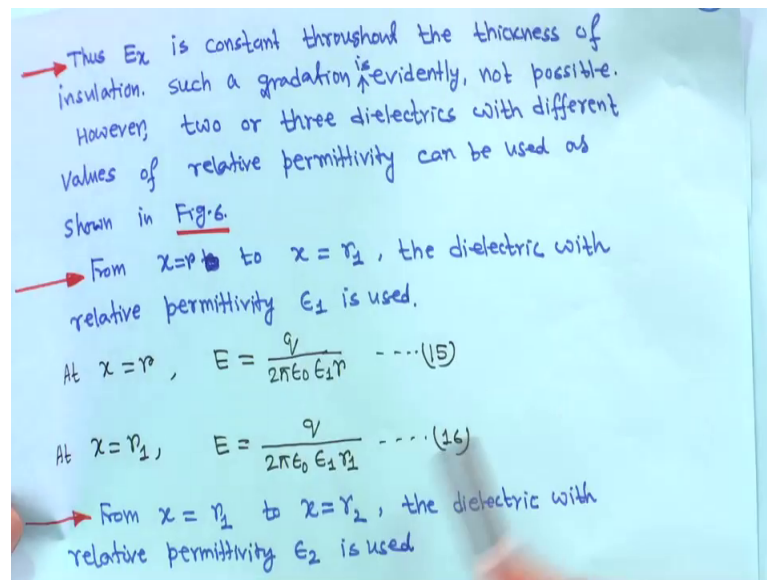 Thus Ex is constant throughout the thickness of
insulation. such a gradation is evidently, not possible.
However, two or three di-electrics with different
values of relative permittivity can be used as
shown in Fig.6.
From x=r to x = r1, the di-electric with
relative permittivity ϵ1 is used.
At x=r, E = q/2πϵ0ϵ1r ----(15)
At x=r1, E = q/2πϵ0ϵ1r1 ----(16)
From x = r1 to x=r2, the dielectric with
relative permittivity ϵ2 is used